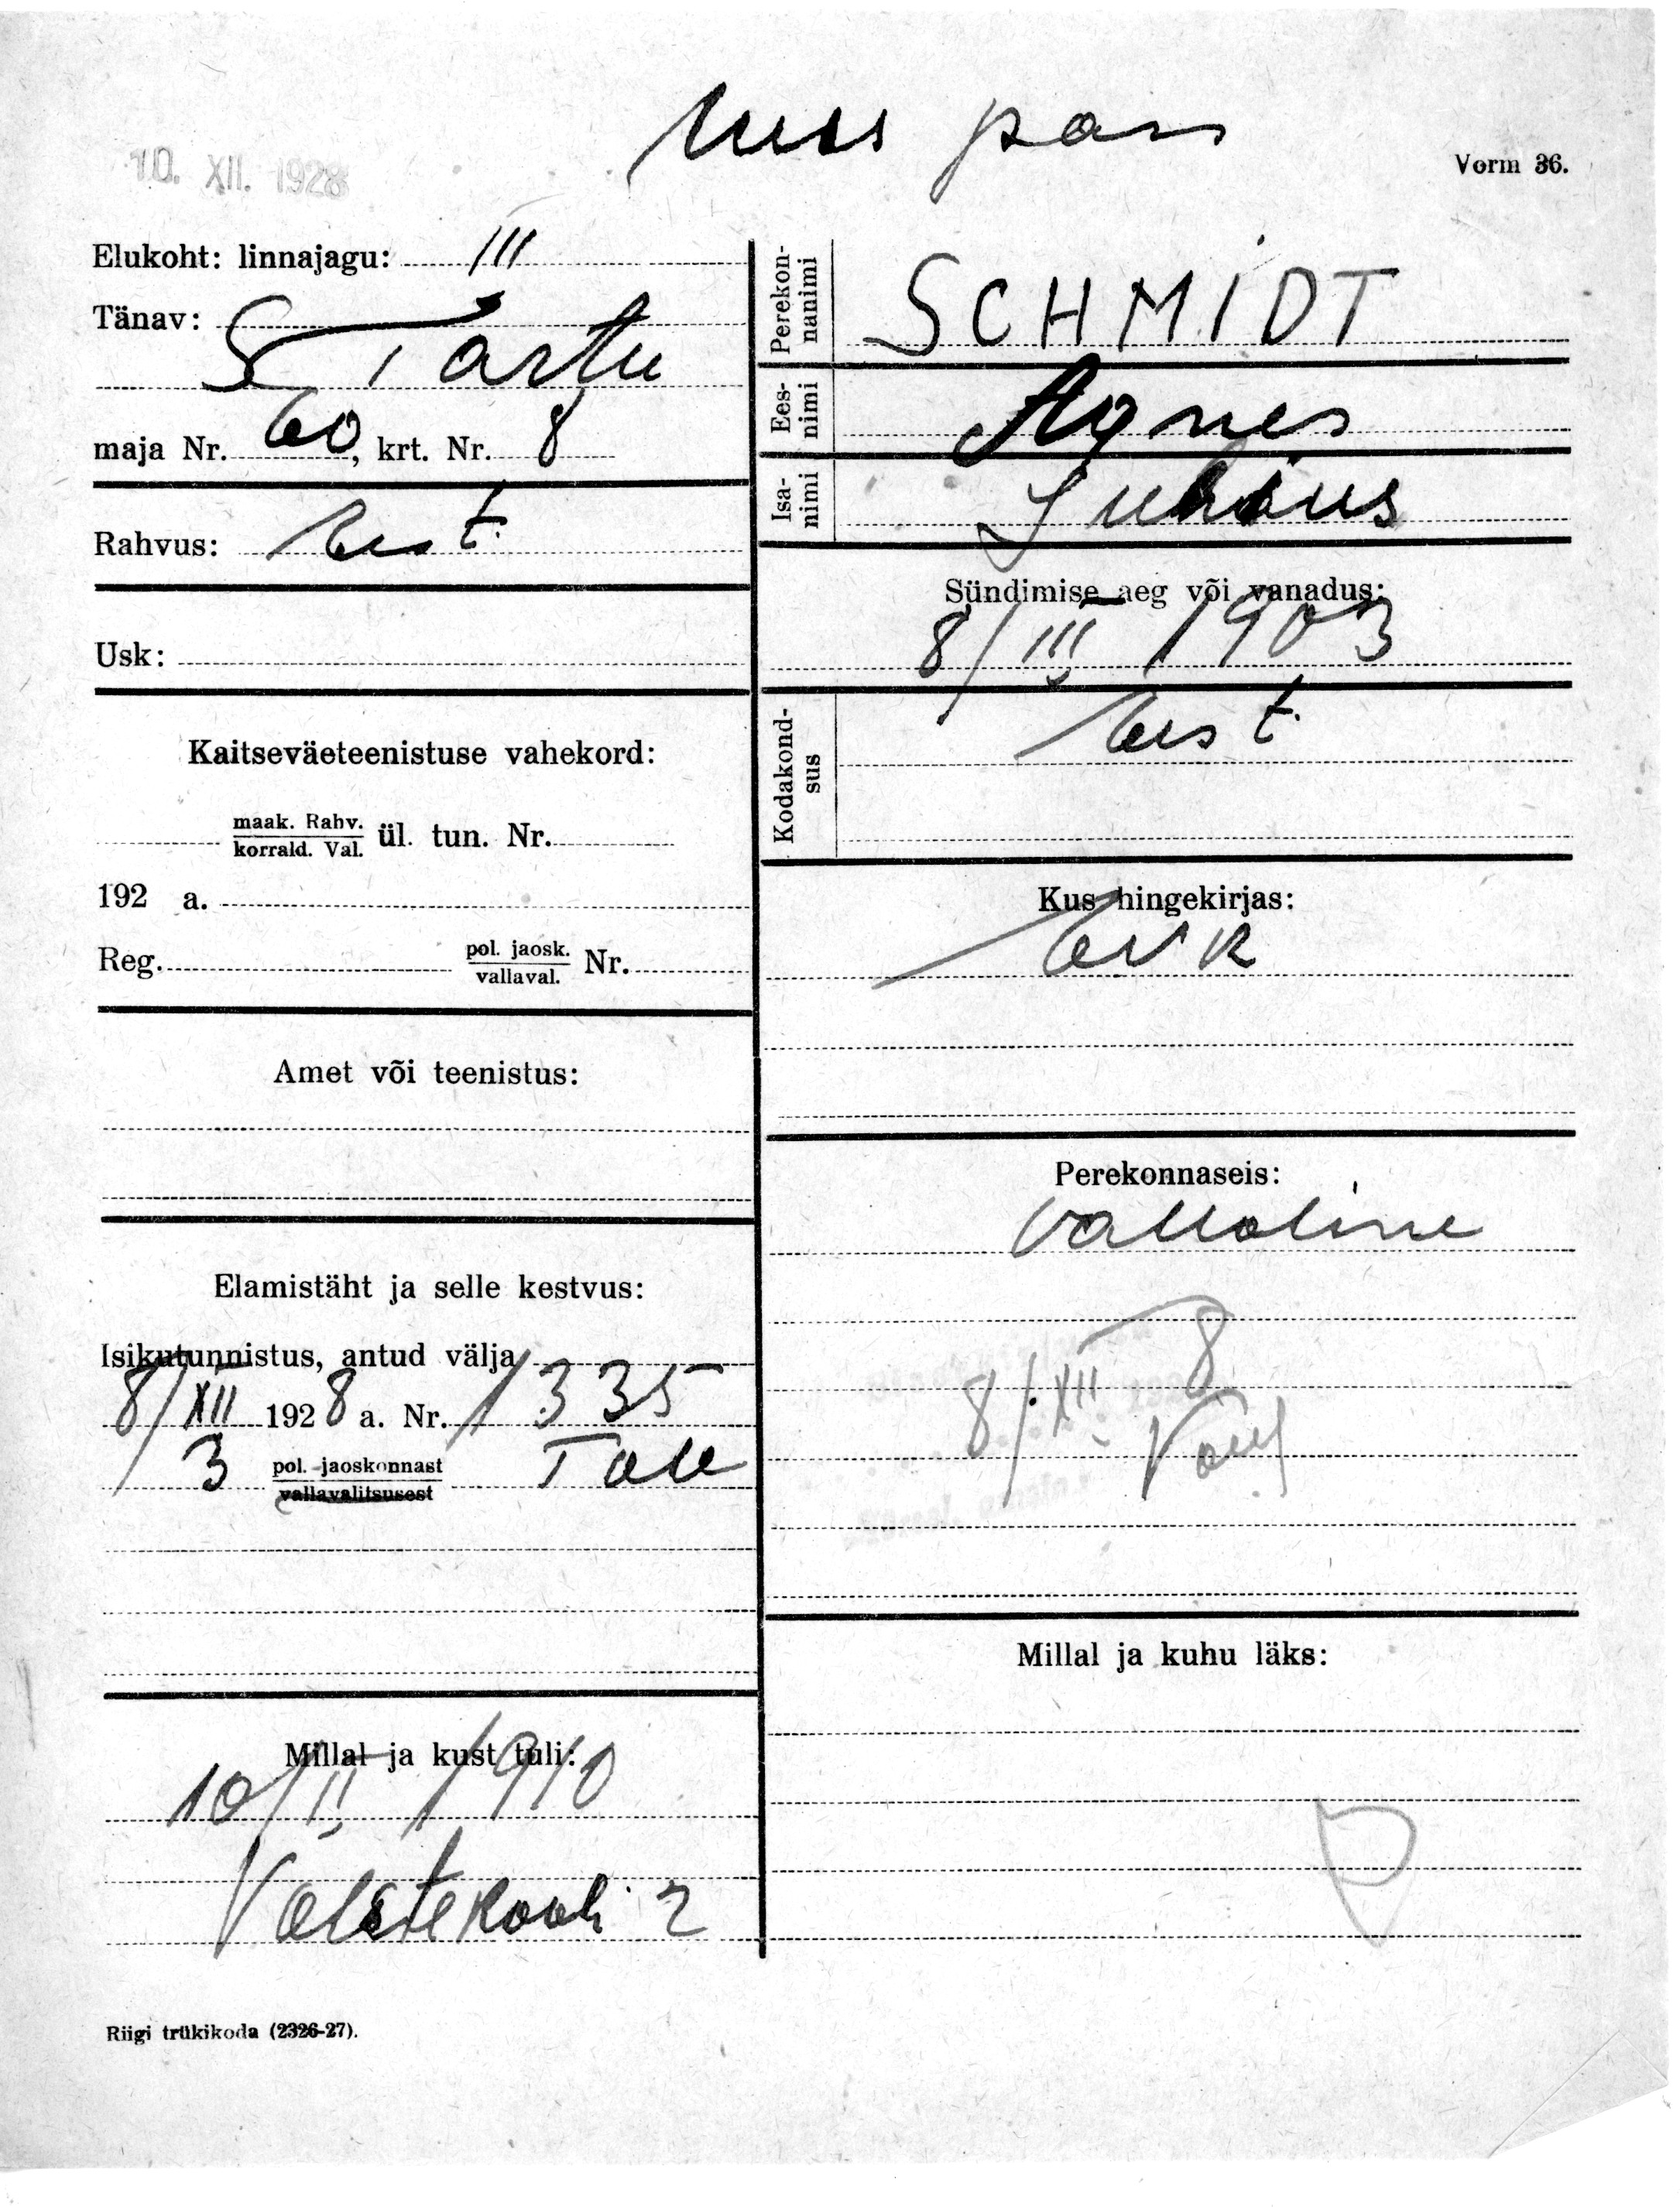 uus pass
10. XII. 1928
Vorm 36.
Elukoht: linnajagu: III
Tänav:
S. Tartu
maja Nr. 60, krt. Nr. 8
Rahvus: eest.
Usk:
Kaitseväeteenistuse vahekord:
maak. Rahv.
korrald. Val. ül. tun. Nr.
192 a.
Reg. pol. jaosk.
vallaval. Nr.
Amet või teenistus:
Elamistäht ja selle kestvus:
Isikutunnistus, antud välja
8/XII 1928 a. Nr. 1335
3 pol. jaoskonnast
vallavalitsusest
Millal ja kust tuli:
10/II 1910
Riigi trükikoda (2326-27).
Perekonnanimi SCHMIDT
Eesnimi Agnes
Isanimi
Sündimise aeg või vanadus:
8/III 1903
Kodakondsus eest.
Kus hingekirjas:
Perekonnaseis:
vallaline
8/XII 8
Millal ja kuhu läks: